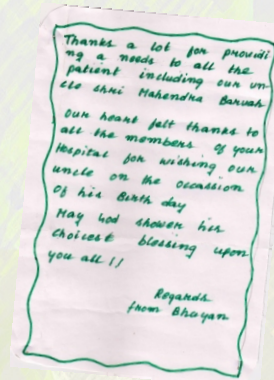 Thanks a lot for providi
ng a needs to all the
patient including our un-
cle shri Mahendra Baruah
Our heart felt thanks to
all the members of your
Hospital for wishing our
uncle on the occassion
Of his Birth day
May God shower his
choicest blessing upon
you all !!
Regards
from Bhuyan